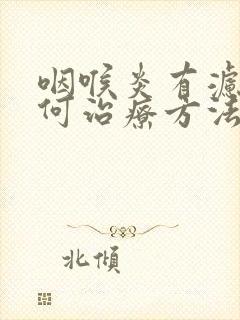 咽喉炎有濾
何治療方法
北傾